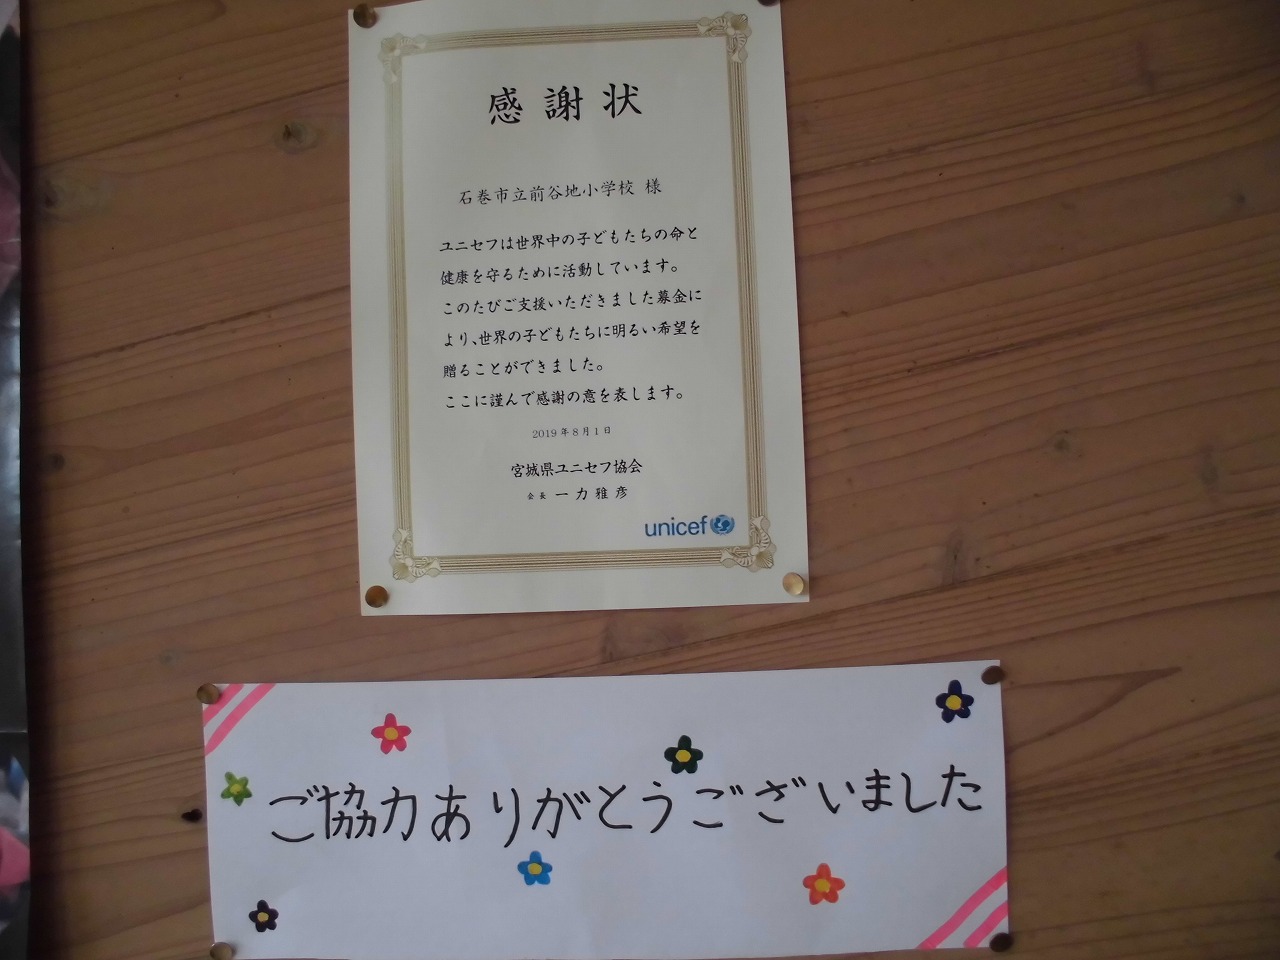 感謝状
石巻市立前谷地小学校 様
ユニセフは世界中の子どもたちの命と
健康を守るために活動しています。
このたびご支援いただきました募金に
より、世界の子どもたちに明るい希望を
贈ることができました。
ここに謹んで感謝の意を表します。
2019年8月1日
宮城県ユニセフ協会
会長 一力雅彦
unicef
ご協力ありがとうございました